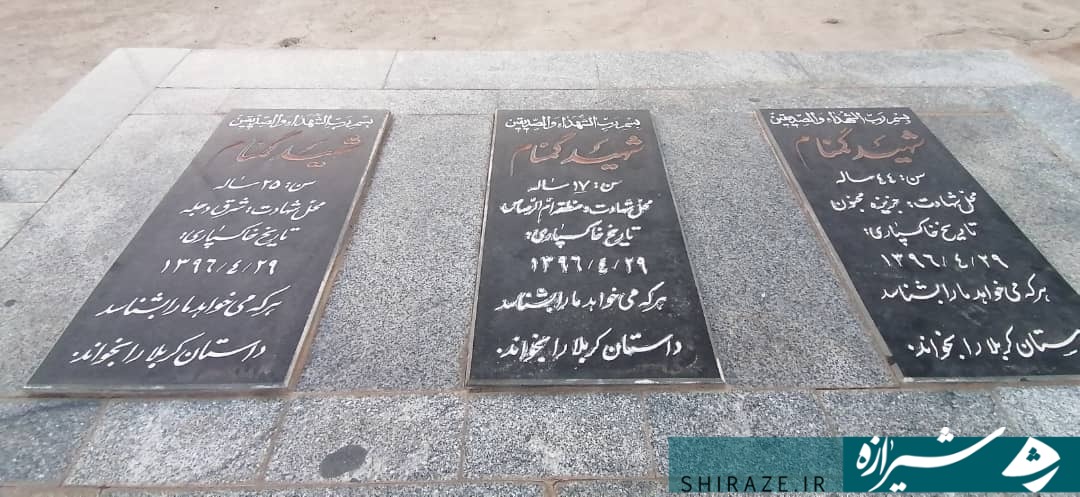 بسم رب الشهداء والصدیقین
شهید گمنام
سن: ۴۴ ساله
محل شهادت: جزیره مجنون
تاریخ خاکسپاری:
۱۳۹۶/۴/۲۹
هر که می خواهد ما را بشناسد
داستان کربلا را بخواند.
بسم رب الشهداء والصدیقین
شهید گمنام
سن: ۱۷ ساله
محل شهادت: منطقه ام الرصاص
تاریخ خاکسپاری:
۱۳۹۶/۴/۲۹
هر که می خواهد ما را بشناسد
داستان کربلا را بخواند.
بسم رب الشهداء والصدیقین
شهید گمنام
سن: ۲۵ ساله
محل شهادت: شرق دجله
تاریخ خاکسپاری:
۱۳۹۶/۴/۲۹
هر که می خواهد ما را بشناسد
داستان کربلا را بخواند.
شیرازه
SHIRAZE.IR